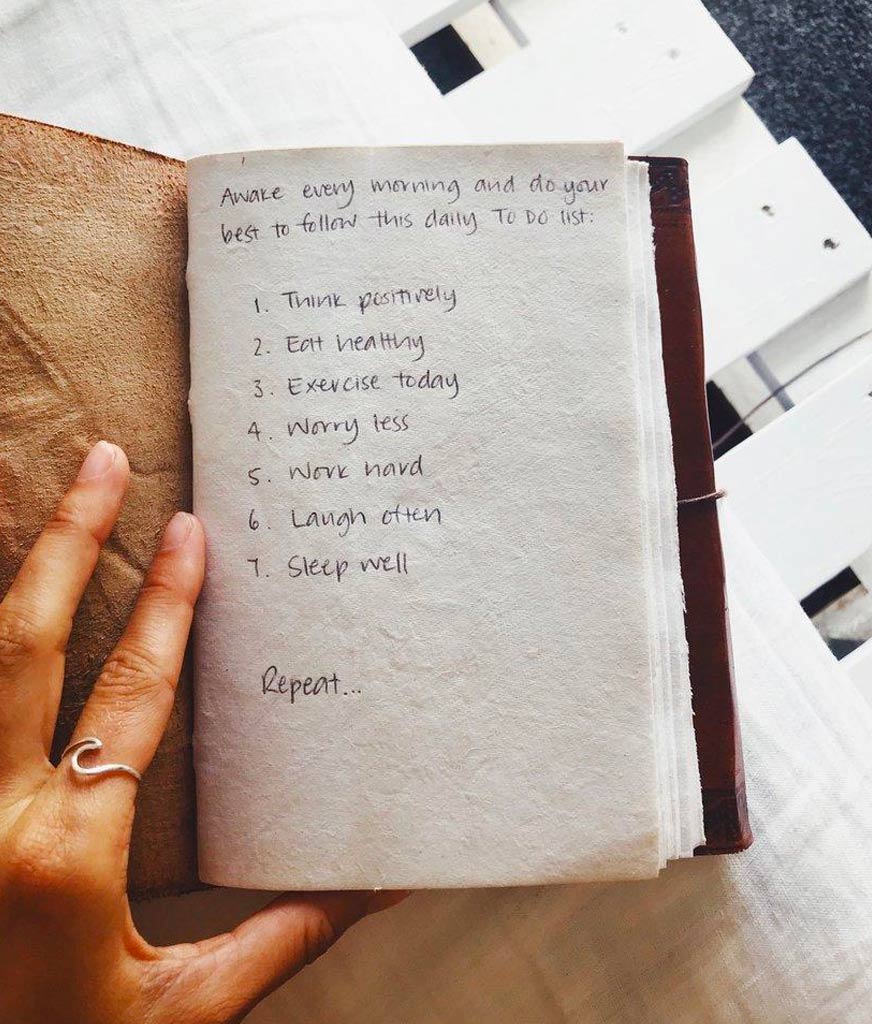 Awake every morning and do your
best to follow this daily TO DO list:
1. Think positively
2. Eat healthy
3. Exercise today
4. Worry less
5. Work hard
6. Laugh often
7. Sleep well
Repeat...